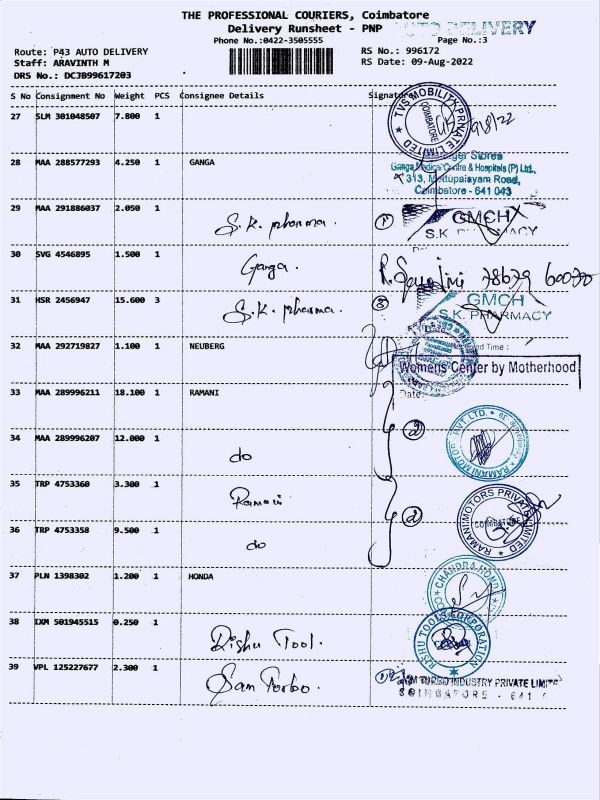 THE PROFESSIONAL COURIERS, Coimbatore
Delivery Runsheet - PNP
AUTO DELIVERY
Phone No.:0422-3505555
Page No.:3
Route: P43 AUTO DELIVERY
RS No.: 996172
Staff: ARAVINTH M
RS Date: 09-Aug-2022
DRS No.: DCJB99617203
S No Consignment No Weight PCS Consignee Details Signature
27 SLM 301048507 7.800 1
TVS MOBILITY PRIVATE LIMITED
COIMBATORE
28 MAA 288577293 4.250 1 GANGA
Stores
Ganga Medical Centre & Hospitals (P) Ltd.,
313, Mettupalayam Road,
Coimbatore - 641 043
29 MAA 291886037 2.050 1 S.K. pharma. 1
GMCH
S.K. PHARMACY
30 SVG 4546895 1.500 1 Ganga.
31 HSR 2456947 15.600 3 S.K. pharma. 3
GMCH
S.K. PHARMACY
Date
32 MAA 292719827 1.100 1 NEUBERG
and Time :
Womens Center by Motherhood
33 MAA 289996211 18.100 1 RAMANI
Date
34 MAA 289996207 12.000 1 do 2
RAMANI MOTORS PVT LTD.
35 TRP 4753360 3.300 1 Ramani
36 TRP 4753358 9.500 1 do 2
RAMANI MOTORS PRIVATE LIMITED
COIMBATORE
37 PLN 1398302 1.200 1 HONDA
CHANDRA HONDA
38 IXM 501945515 0.250 1 Rishu Tool.
RISHU TOOLS CORPORATION
39 VPL 125227677 2.300 1 Sam Turbo. 1
SAM TURBO INDUSTRY PRIVATE LIMITED
COIMBATORE - 641